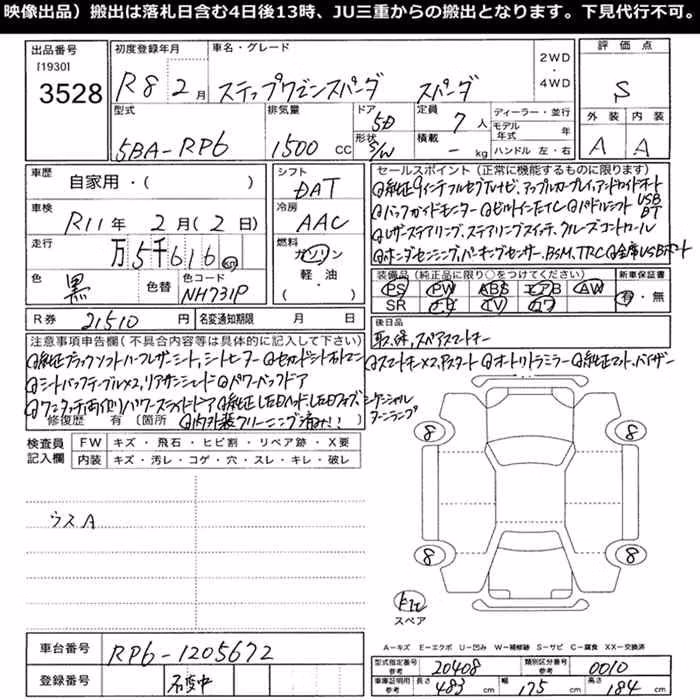 映像出品）搬出は落札日含む4日後13時、JU三重からの搬出となります。下見代行不可。
出品番号 [1930] 3528
初度登録年月 R8 2月
車名・グレード ステップワゴンスパーダ スパーダ
2WD・4WD
評価点 S
外装 内装
A A
型式 5BA-RP6
排気量 1500 CC
ドア 5D
形状 S/W
定員 7人
積載 - kg
ディーラー・並行
モデル年式 年
ハンドル 左・右
車歴 自家用・（ ）
車検 R11年 2月（2日）
走行 万5千616 km
色 黒 色替 色コード NH731P
シフト DAT
冷房 AAC
燃料 ガソリン 軽油・（ ）
セールスポイント（正常に機能するものに限ります）
◎純正9インチフルセグナビ、アップルカープレイ、アンドロイドオート
◎バックガイドモニター ◎ビルトインETC ◎パドルシフト USB BT
◎レザーステアリング、ステアリングスイッチ、クルーズコントロール
◎ホンダセンシング、パーキングセンサー、BSM、TRC ◎全席USBポート
装備品（純正品に限り○をつけてください） 新車保証書
PS PW ABS エアB AW 有・無
SR
R券 21510円 名変通知期限 月 日
後日品 取、保、スペアスマートキー
注意事項申告欄（不具合内容等は具体的に記入して下さい）
◎純正ブラックソフトハーフレザーシート、シートヒーター ◎セカンドシートオットマン ◎スマートキー×2、Pスタート ◎オートリトラミラー ◎純正マット、バイザー
◎シートバックテーブル×2、リアサンシェード ◎パワーバックドア
◎ワンタッチ両側パワースライドドア ◎純正LEDヘッドLEDフォグ、シーケンシャルターンランプ
修復歴 有（箇所 ◎内外装クリーニング済み!!
検査員記入欄
FW キズ・飛石・ヒビ割・リペア跡・X要
内装 キズ・汚レ・コゲ・穴・スレ・キレ・破レ
ウスA
8 8
8 8
スペア
A－キズ E－エクボ U－凹み W－補修跡 S－サビ C－腐食 XX－交換済
車台番号 RP6-1205672
登録番号
型式指定番号 参考 20408 類別区分番号 参考 0010
車庫証明用 参考 長さ 483 cm 幅 175 cm 高さ 184 cm